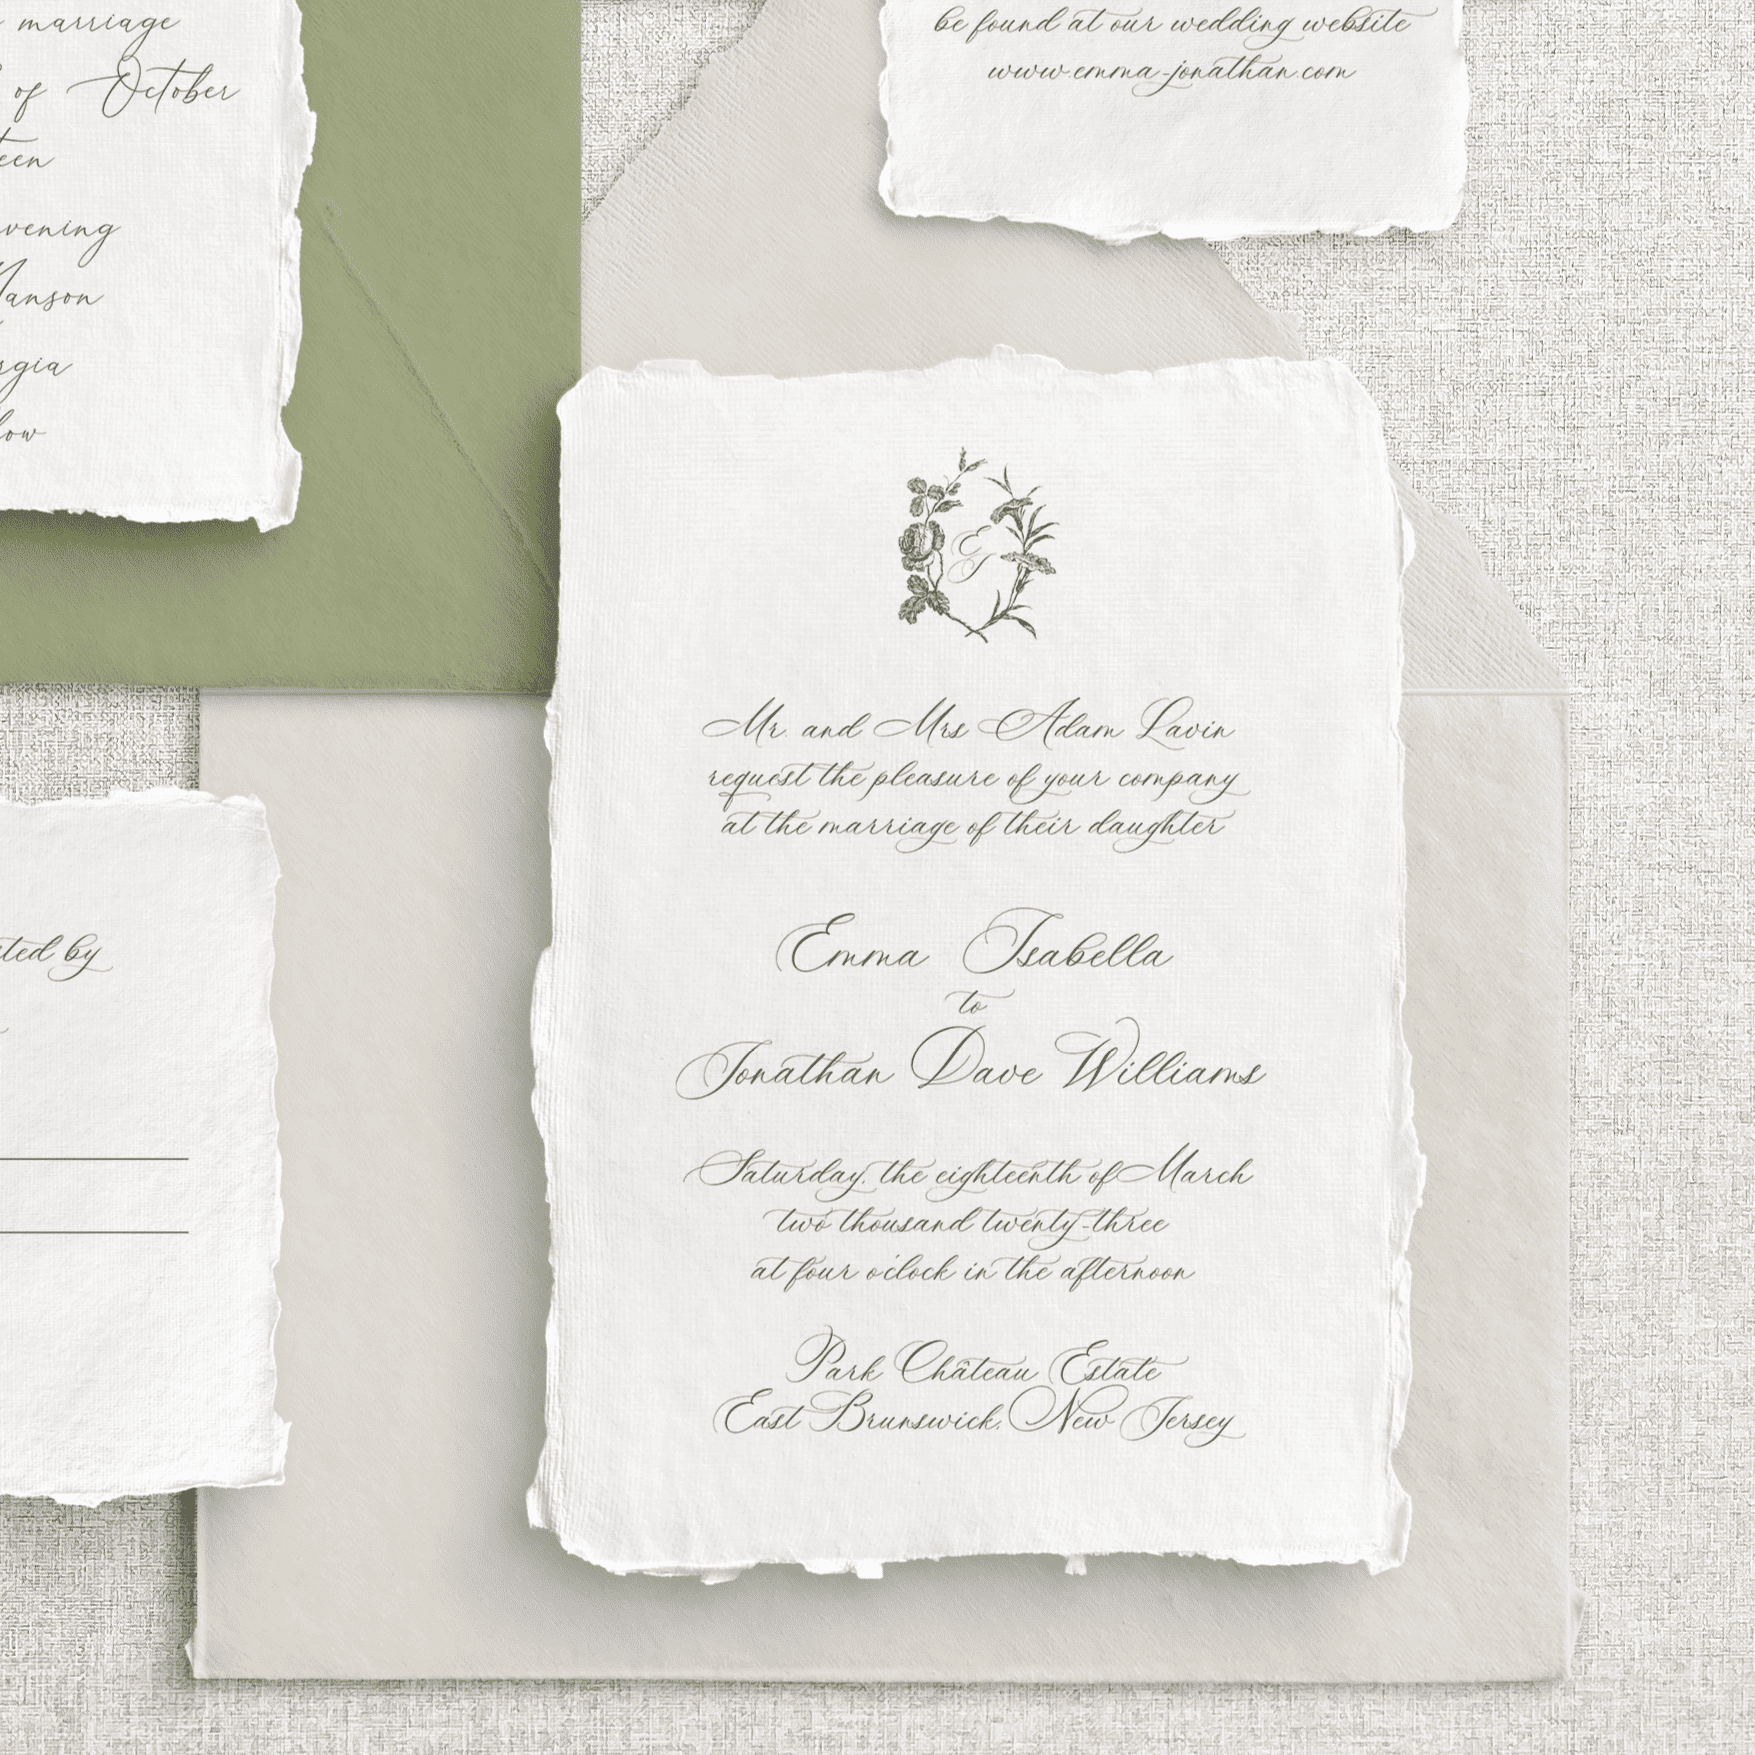 marriage
of October
vening
be found at our wedding website
www.emma-jonathan.com
Mr. and Mrs Adam Lavin
request the pleasure of your company
at the marriage of their daughter
Emma Isabella
to
Jonathan Dave Williams
Saturday, the eighteenth of March
two thousand twenty-three
at four o'clock in the afternoon
Park Château Estate
East Brunswick, New Jersey
by